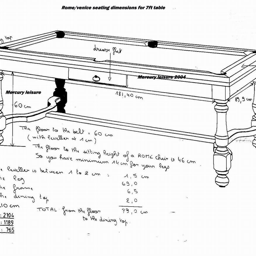 Rome/venice seating dimensions for 7ft table
drawer flat
Mercury leisure 2004
Mercury leisure
181,40 cm
60 cm
The floor to the belt = 60 cm
(with leather + 1")
The floor to the sitting height of a ROME chair is 46 cm
So you have minimum 14 cm for your legs
leather is between 1 to 2 cm : 1,5 cm
leg 63,0
frame 6,5
dining top 2,0
TOTAL from the floor 73,0 cm
to the dining top
10 cm
: 2104
: 1189
: 765